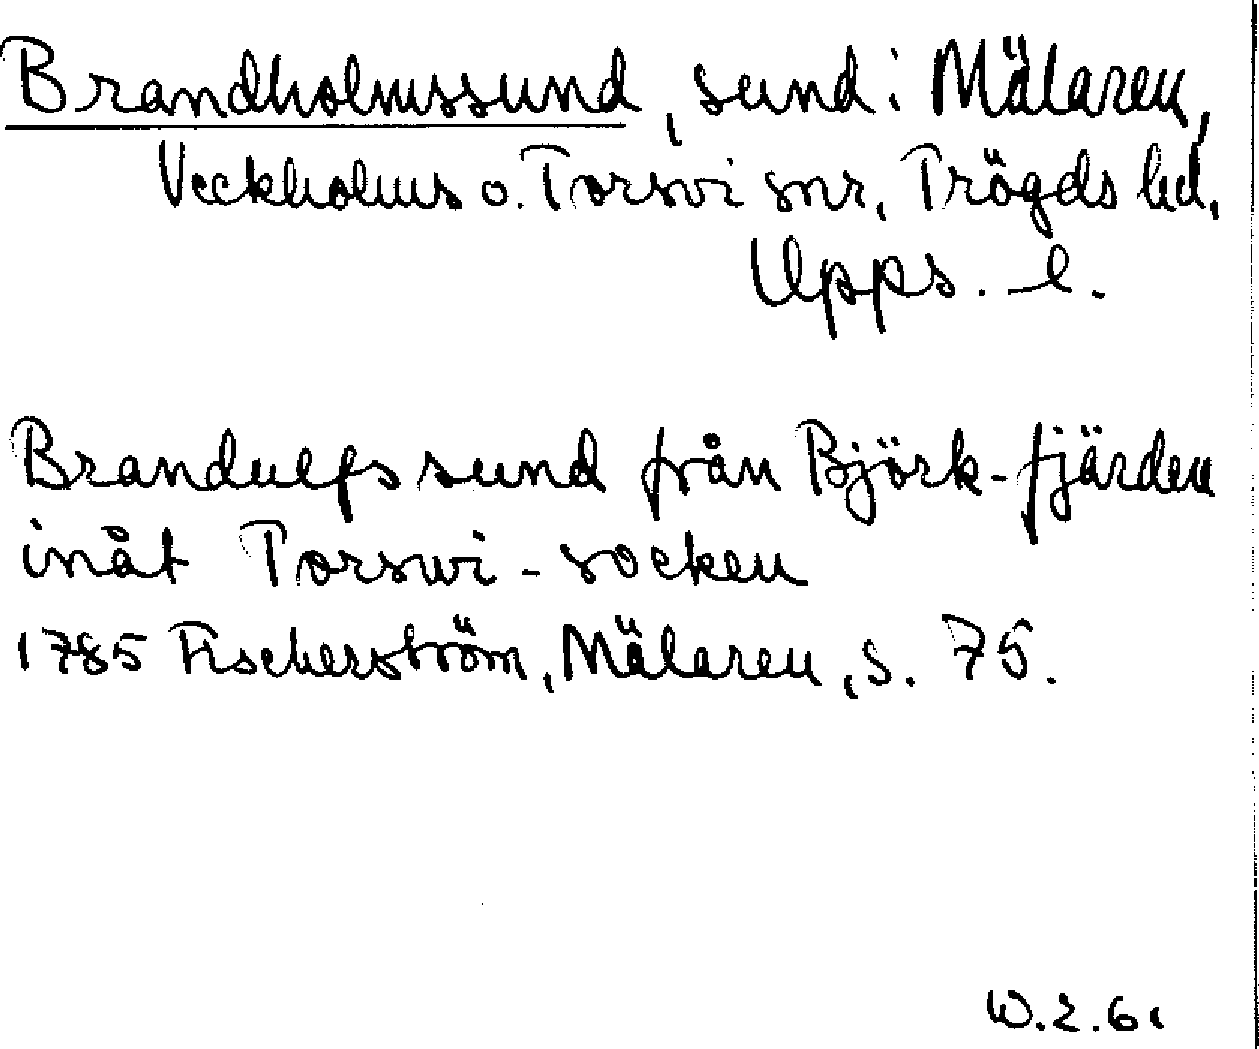 Brandholmssund, sund i Mälaren,
Veckholms o. Torsvi snr, Trögds hd,
Upps. l.
Brandulfssund från Björk-fjärden
inåt Torswi-socken
1785 Fischerström, Mälaren, s. 75.
W.2.61